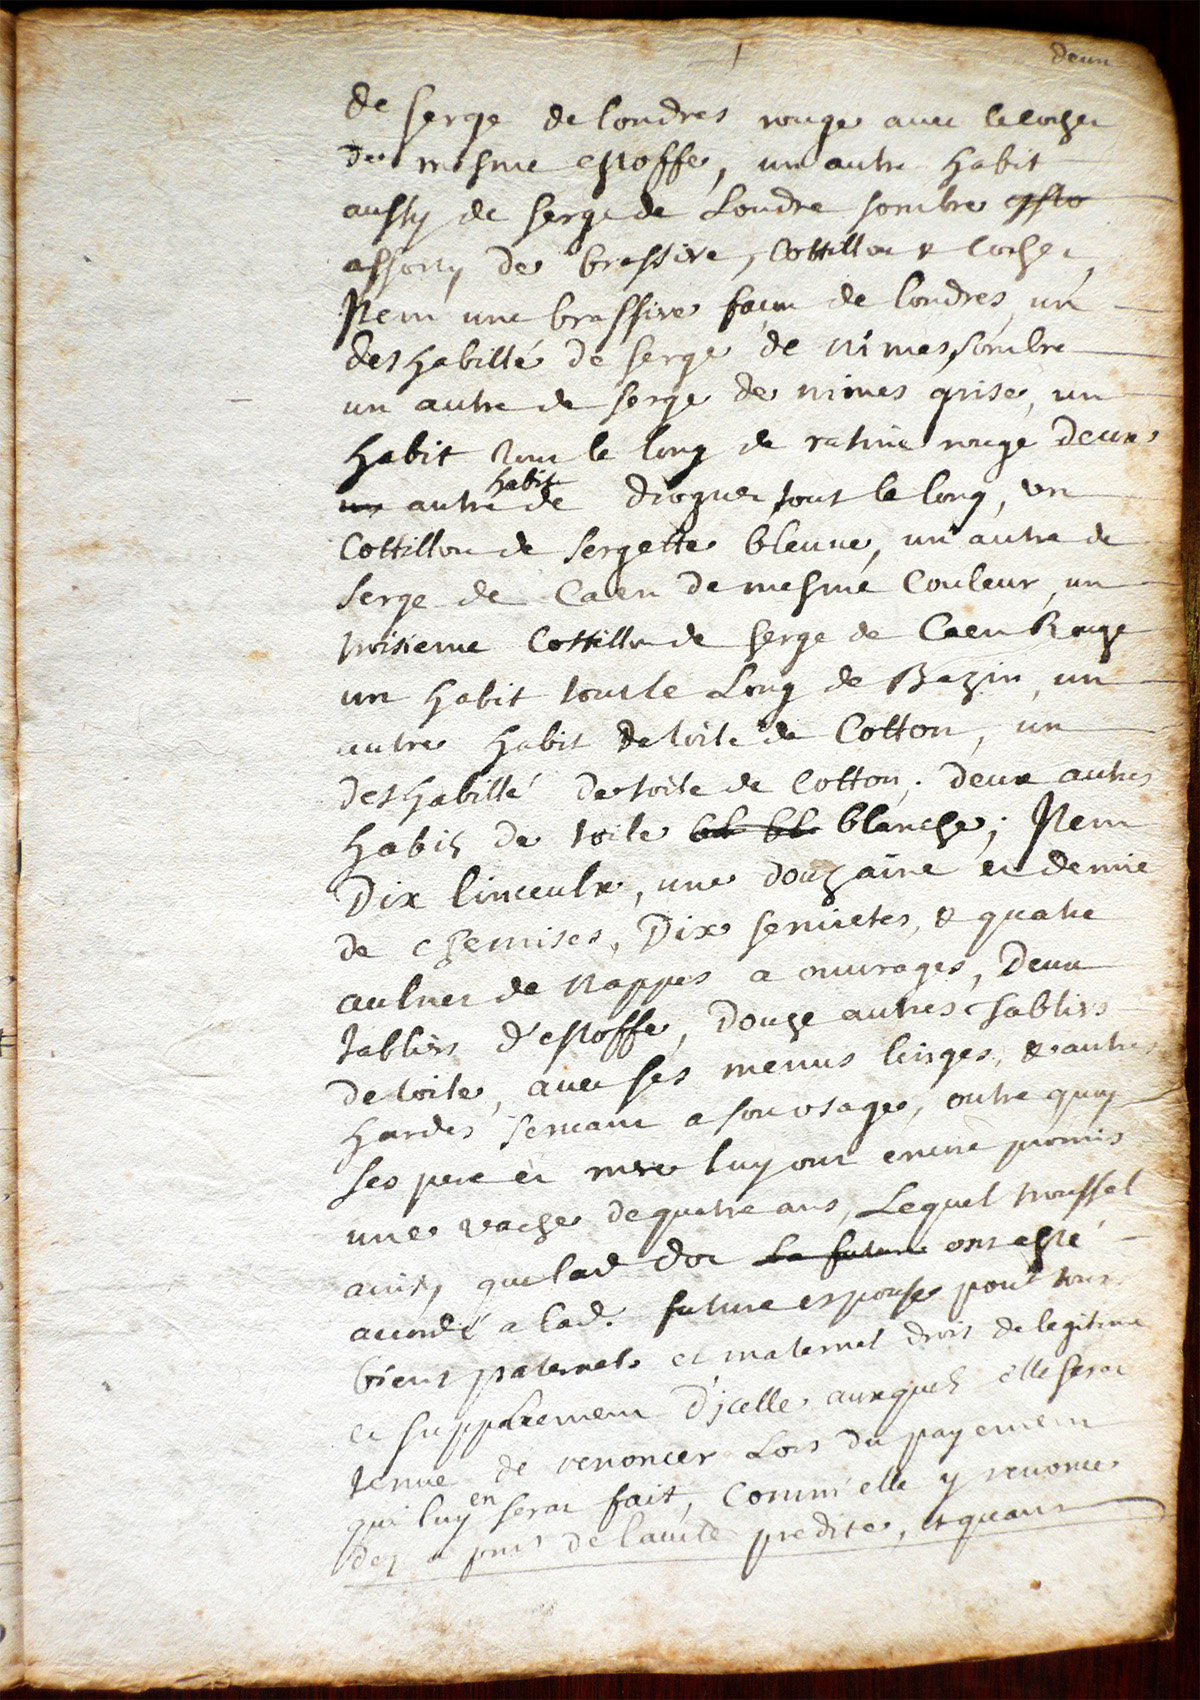 deux
de serge de londres rouge avec le cocher
de mesme estoffe, un autre habit
aussy de serge de Londre sombre
assorty de brassire, Cottillon & cocher,
Item une brassire façon de londres, un
deshabillé de serge de Nimes, sombre
un autre de serge de nimes grise, un
habit tout le long de ratine rouge deux
un autre habit de droguet tout le long, un
Cottillon de sergette bleuue, un autre de
serge de Caen de mesme Couleur, un
troisieme Cottillon de serge de Caen Rouge
un habit tout le Long de Bazin, un
autre habit de toile de Cotton, un
deshabillé de toile de Cotton; deux autres
habitz de toile blanche; Item
Dix linceulx, une douzaine et demie
de chemises, Dix seruietes, & quatre
aulnes de Nappes a ouurages, Deux
tabliers d'estoffe, Douze autres tabliers
de toile, auec ses menus linges, & autres
hardes seruant a son usage, outre quoy
ses pere et mere luy ont encore promis
une vache de quatre ans, Lequel troussel
ainsy que lad dot la future ont esté
acordé a lad. future espouse pour tous
biens paternels et maternel droit de legitime
et supplement d'icelle auxquels elle serat
tenue de renoncer Lors du payement
qui luy en serat fait, Comm'elle y renonce
dez a pnt de laucte predite, et quant